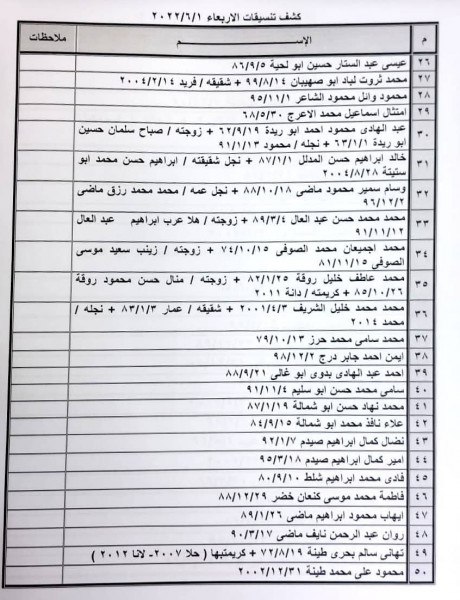 كشف تنسيقات الاربعاء ٢٠٢٢/٦/١
م الإســـم ملاحظات
٢٦ عيسى عبد الستار حسين ابو لحية ٨٦/٩/٥
٢٧ محمد ثروت لباد ابو صهيبان ٩٩/٨/١٤ + شقيقه / فريد ٢٠٠٤/٢/١٤
٢٨ محمود وائل محمود الشاعر ٩٥/١١/١
٢٩ امتثال اسماعيل محمد الاعرج ٦٨/٥/٣٠
٣٠ عبد الهادى محمود احمد ابو ريدة ٦٢/٩/١٩ + زوجته / صباح سلمان حسين
ابو ريدة ٦٣/١/١ + نجله / محمود ٩١/١/١٣
٣١ خالد ابراهيم حسن المدلل ٨٧/١/١ + نجل شقيقته / ابراهيم حسن محمد ابو
ستيتة ٢٠٠٤/٨/٢٨
٣٢ وسام سمير محمود ماضى ٨٨/١٠/١٨ + نجل عمه / محمد محمد رزق ماضى
٩٦/١٢/٢
٣٣ محمد محمد حسن عبد العال ٨٩/٣/٤ + زوجته / هلا عرب ابراهيم عبد العال
٩١/١١/١٢
٣٤ محمد اجميعان محمد الصوفى ٧٤/١٠/١٥ + زوجته / زينب سعيد موسى
الصوفى ٨١/١١/١٥
٣٥ محمد عاطف خليل روقة ٨٢/١/٢٥ + زوجته / منال حسن محمود روقة
٨٥/١٠/٢٦ + كريمته / دانة ٢٠١١
٣٦ محمد محمد خليل الشريف ٢٠٠١/٤/٣ + شقيقه / عمار ٨٣/١/٣ + نجله /
محمد ٢٠١٤
٣٧ محمد سامى محمد حرز ٧٩/١٠/١٣
٣٨ ايمن احمد جابر درج ٩٨/١٢/٢
٣٩ احمد عبد الهادى بدوى ابو غالى ٨٨/٩/٢١
٤٠ سامى محمد حسن ابو سليم ٩١/١١/٤
٤١ محمد نهاد حسن ابو شمالة ٨٧/١/١٩
٤٢ علاء نافذ محمد ابو شمالة ٨٤/٩/١٥
٤٣ نضال كمال ابراهيم صيدم ٩٢/١/٧
٤٤ امير كمال ابراهيم صيدم ٩٥/٣/١٨
٤٥ فادى محمد ابراهيم شلط ٨٠/٩/١٠
٤٦ فاطمة محمد موسى كنعان خضر ٨٨/١٢/٢٩
٤٧ ايهاب محمود ابراهيم ماضى ٨٩/١/٢٦
٤٨ روان عبد الرحمن نايف ماضى ٩٠/٣/١٧
٤٩ تهانى سالم بحرى طينة ٧٢/٨/١٩ + كريمتيها ( حلا ٢٠٠٧- لانا ٢٠١٢ )
٥٠ محمود على محمد طينة ٢٠٠٢/١٢/٣١